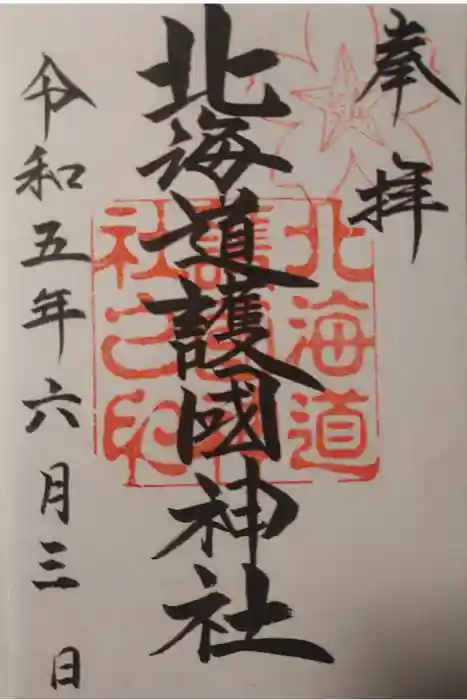 奉拝
北海道護國神社
令和五年六月三日
北海道
護國神
社之印